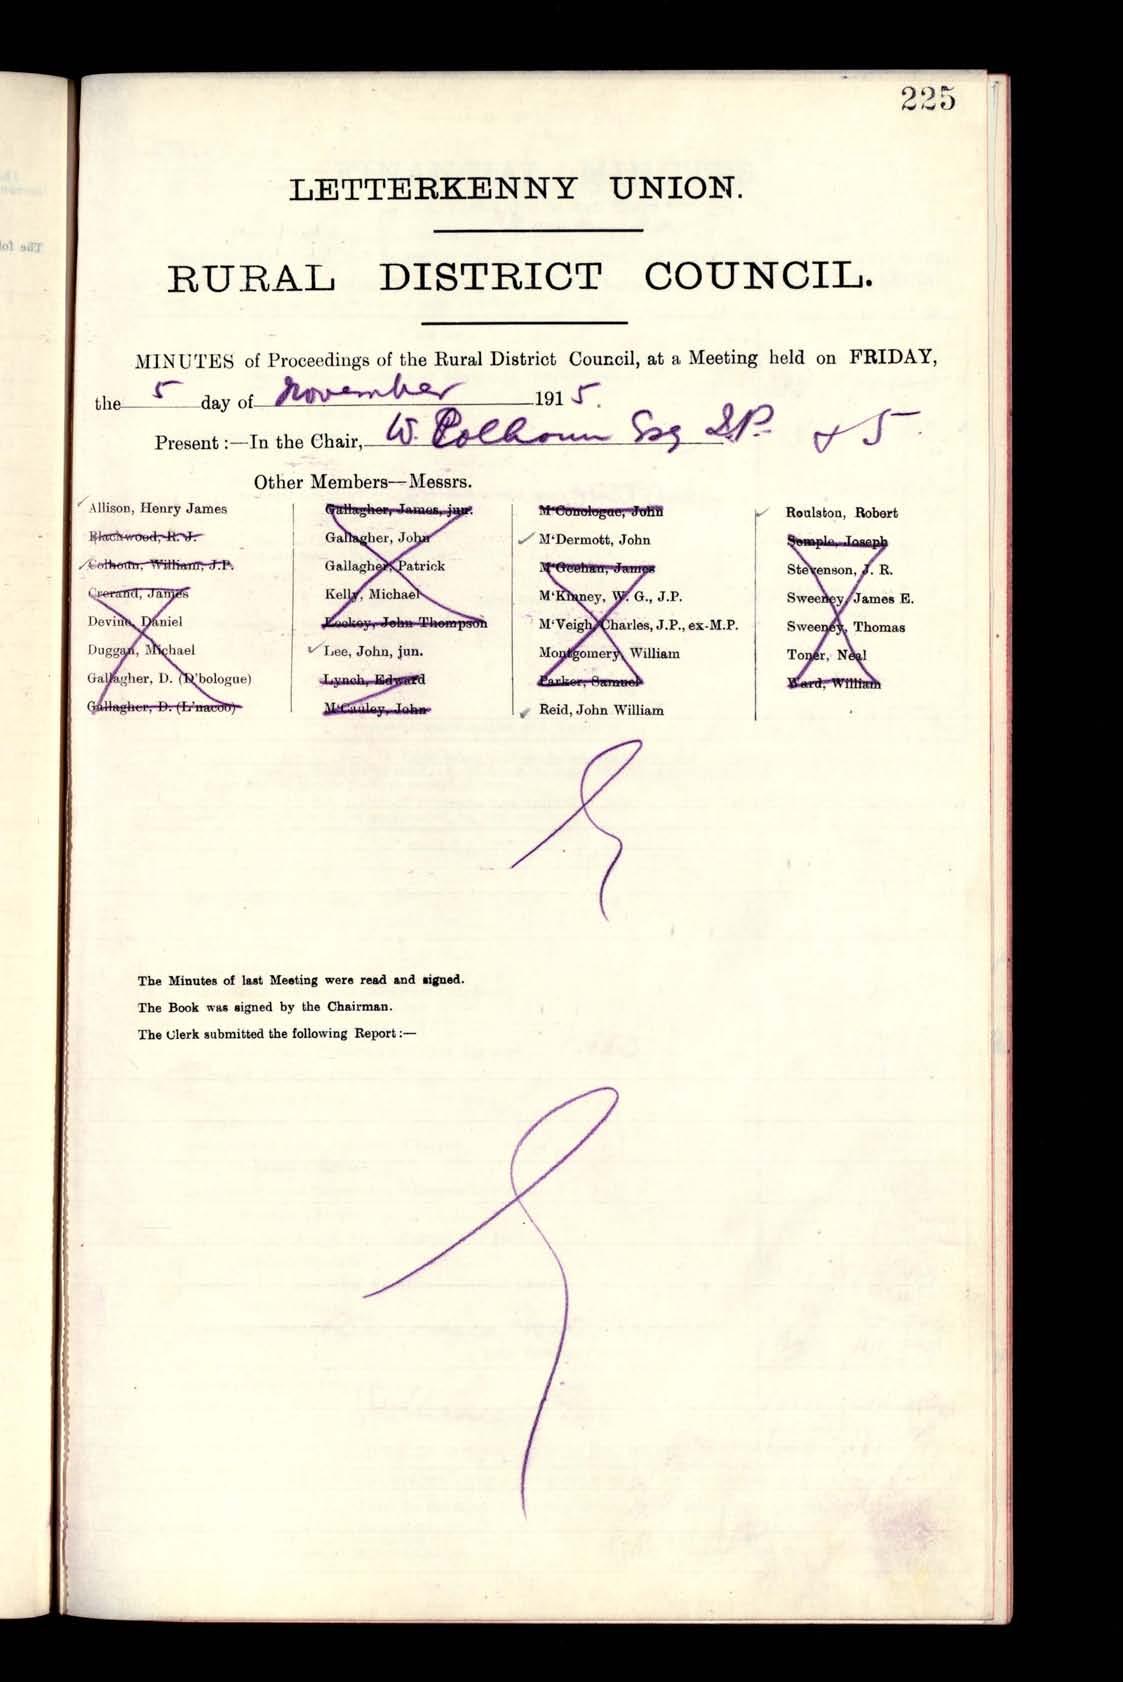 225
LETTERKENNY UNION.
RURAL DISTRICT COUNCIL.
MINUTES of Proceedings of the Rural District Council, at a Meeting held on FRIDAY,
the 5 day of November 1915.
Present :—In the Chair, W. Colhoun Esq J.P. & 5
Other Members—Messrs.
Allison, Henry James
Blackwood, R. J.
Colhoun, William, J.P.
Crerand, James
Devine, Daniel
Duggan, Michael
Gallagher, D. (D'bologue)
Gallagher, D. (L'nacoo)
Gallagher, James, jun.
Gallagher, John
Gallagher, Patrick
Kelly, Michael
Leckey, John Thompson
Lee, John, jun.
Lynch, Edward
M'Cauley, John
M'Conologue, John
M'Dermott, John
M'Geehan, James
M'Kinney, W. G., J.P.
M'Veigh, Charles, J.P., ex-M.P.
Montgomery, William
Parker, Samuel
Reid, John William
Roulston, Robert
Semple, Joseph
Stevenson, J. R.
Sweeney, James E.
Sweeney, Thomas
Toner, Neal
Ward, William
The Minutes of last Meeting were read and signed.
The Book was signed by the Chairman.
The Clerk submitted the following Report :—